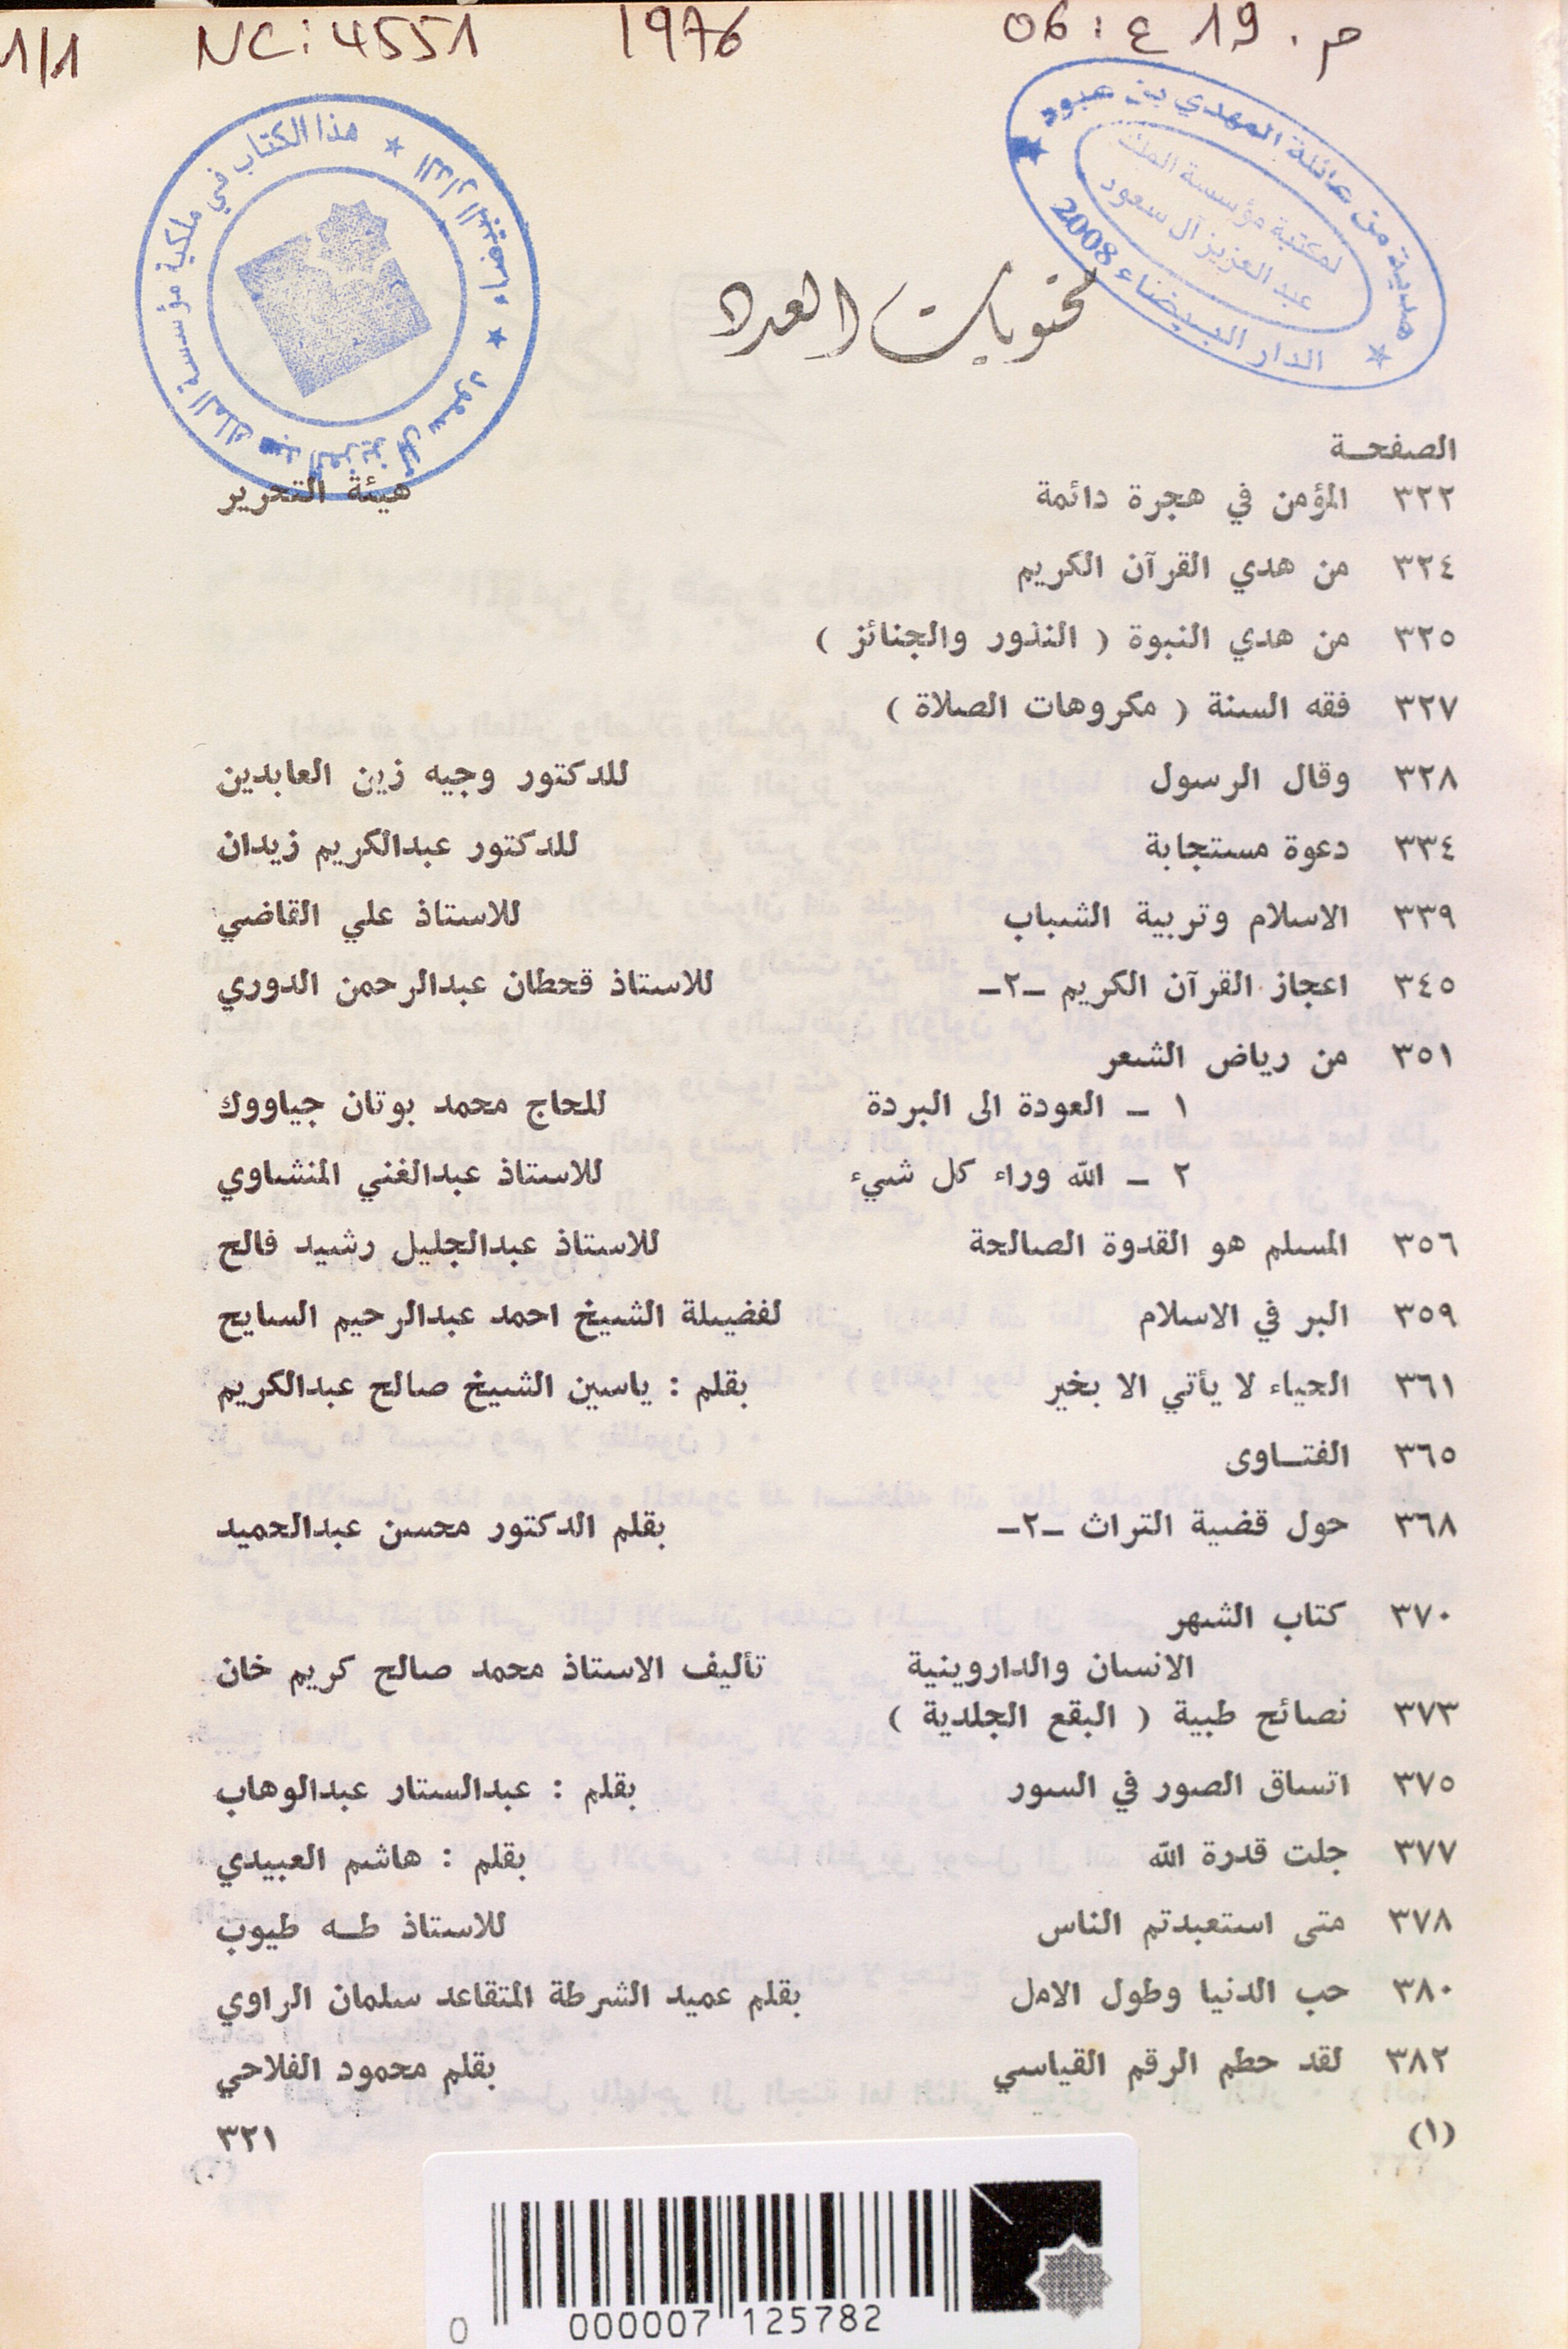 م. 19 ع : 06 1976 NC: 4551 1/1
هدية من عائلة المهدي بن عبود
لمكتبة مؤسسة الملك
عبد العزيز آل سعود
الدار البيضاء 2008
هذا الكتاب في ملكية مؤسسة الملك عبد العزيز آل سعود ★ الدار البيضاء ★
محتويات العدد
الصفحــة
٣٢٢ المؤمن في هجرة دائمة هيئة التحرير
٣٢٤ من هدي القرآن الكريم
٣٢٥ من هدي النبوة ( النذور والجنائز )
٣٢٧ فقه السنة ( مكروهات الصلاة )
٣٢٨ وقال الرسول للدكتور وجيه زين العابدين
٣٣٤ دعوة مستجابة للدكتور عبدالكريم زيدان
٣٣٩ الاسلام وتربية الشباب للاستاذ علي القاضي
٣٤٥ اعجاز القرآن الكريم -٢- للاستاذ قحطان عبدالرحمن الدوري
٣٥١ من رياض الشعر
١ - العودة الى البردة للحاج محمد بوتان جياووك
٢ - الله وراء كل شيء للاستاذ عبدالغني المنشاوي
٣٥٦ المسلم هو القدوة الصالحة للاستاذ عبدالجليل رشيد فالح
٣٥٩ البر في الاسلام لفضيلة الشيخ احمد عبدالرحيم السايح
٣٦١ الحياء لا يأتي الا بخير بقلم : ياسين الشيخ صالح عبدالكريم
٣٦٥ الفتــاوى
٣٦٨ حول قضية التراث -٢- بقلم الدكتور محسن عبدالحميد
٣٧٠ كتاب الشهر
الانسان والداروينية تأليف الاستاذ محمد صالح كريم خان
٣٧٣ نصائح طبية ( البقع الجلدية )
٣٧٥ اتساق الصور في السور بقلم : عبدالستار عبدالوهاب
٣٧٧ جلت قدرة الله بقلم : هاشم العبيدي
٣٧٨ متى استعبدتم الناس للاستاذ طــه طيوب
٣٨٠ حب الدنيا وطول الامل بقلم عميد الشرطة المتقاعد سلمان الراوي
٣٨٢ لقد حطم الرقم القياسي بقلم محمود الفلاحي
(١) ٣٢١
0 000007 125782